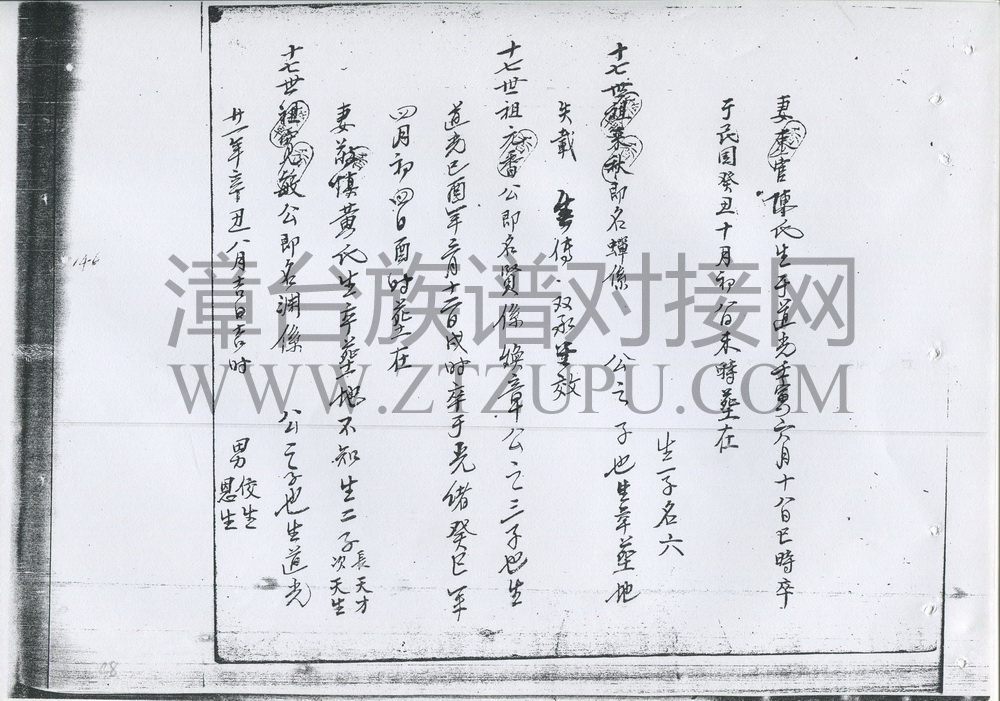 妻東官陳氏生于道光壬寅六月十八日巳時卒
于民国癸丑十月初八日未時葬在
生一子名六
十七世祖秉秋即名蟬係 公之子也生卒葬地
失載 傳双承
十七世祖元番公即名賢係煥章公之三子也生
道光己酉年二月十二日戌时卒于光绪癸巳年
四月初四日酉时葬在
妻敬慎黄氏生卒葬地不知生二子長天才次天生
十七世祖寬敏公即名渊係 公之子也生道光
廿一年辛丑八月吉日吉时 男佼生恩生
漳台族谱对接网
WWW.ZTZUPU.COM
14-6
08